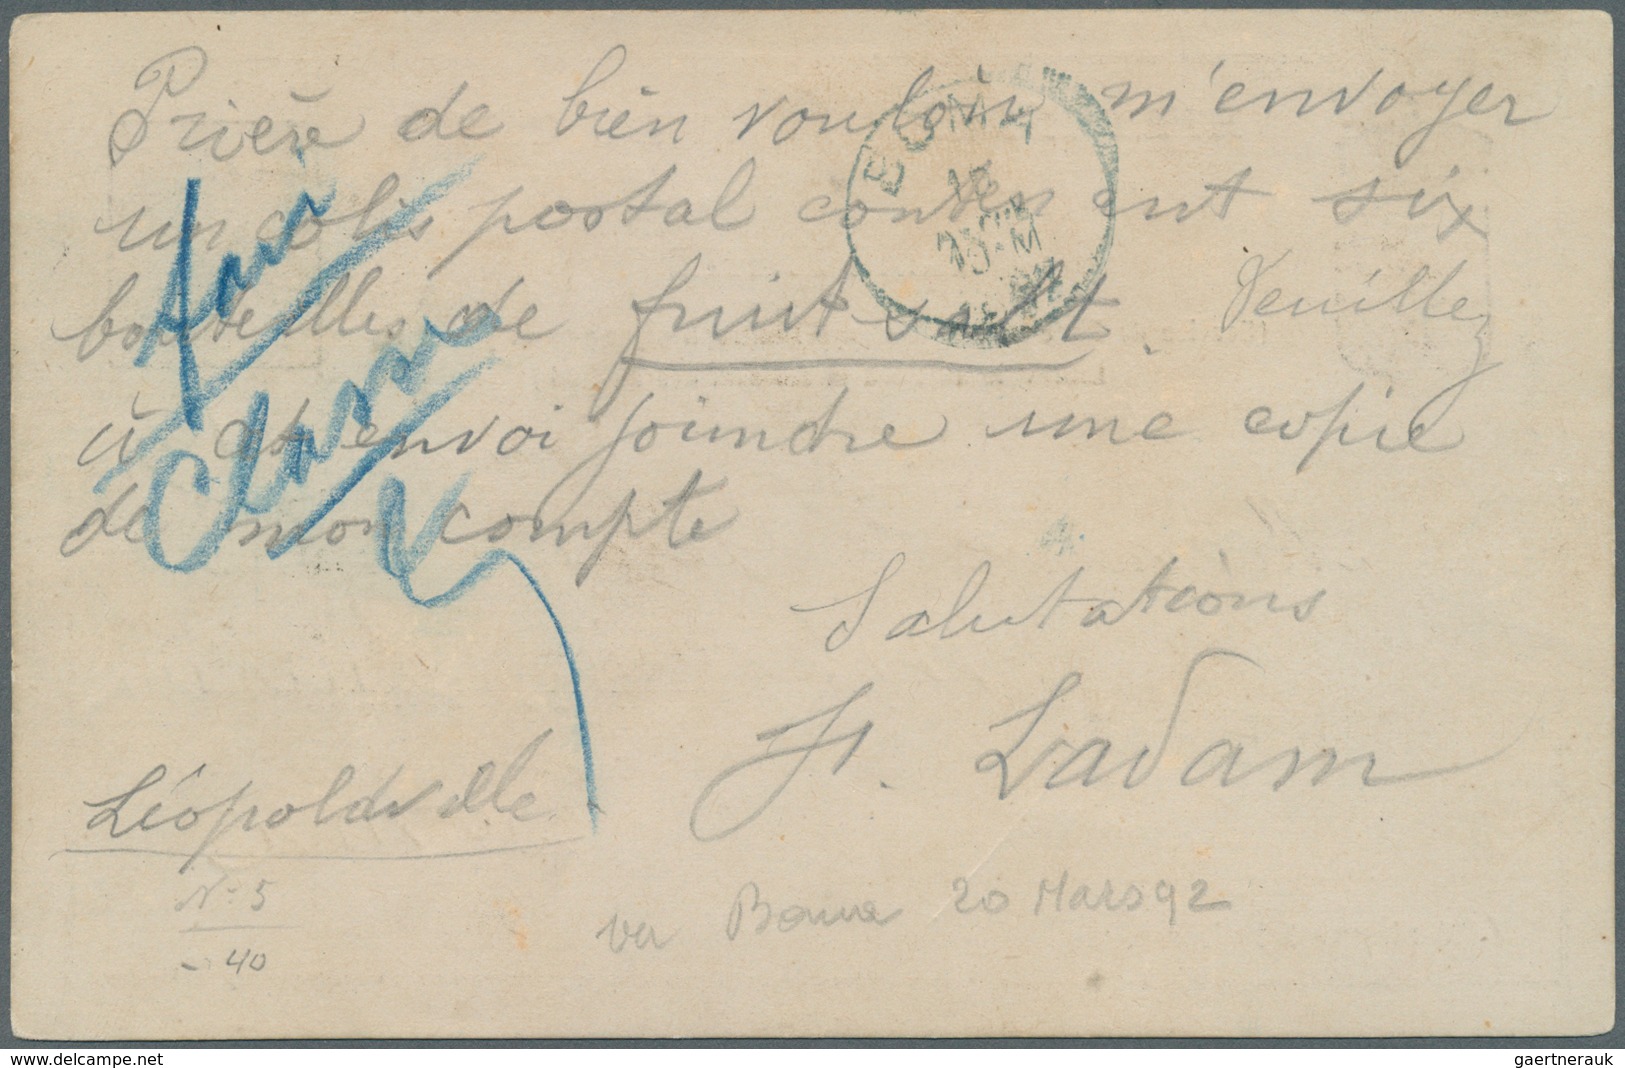 Prière de bien vouloir m'envoyer
un colis postal contenant six
bouteilles de fruit salt. Veuillez
à cet envoi joindre une copie
de mon compte
Salutations
Ladam
Léopoldville
BOMA
N° 5
- 40
20 Mars 92
www.delcampe.net
gaertnerauk